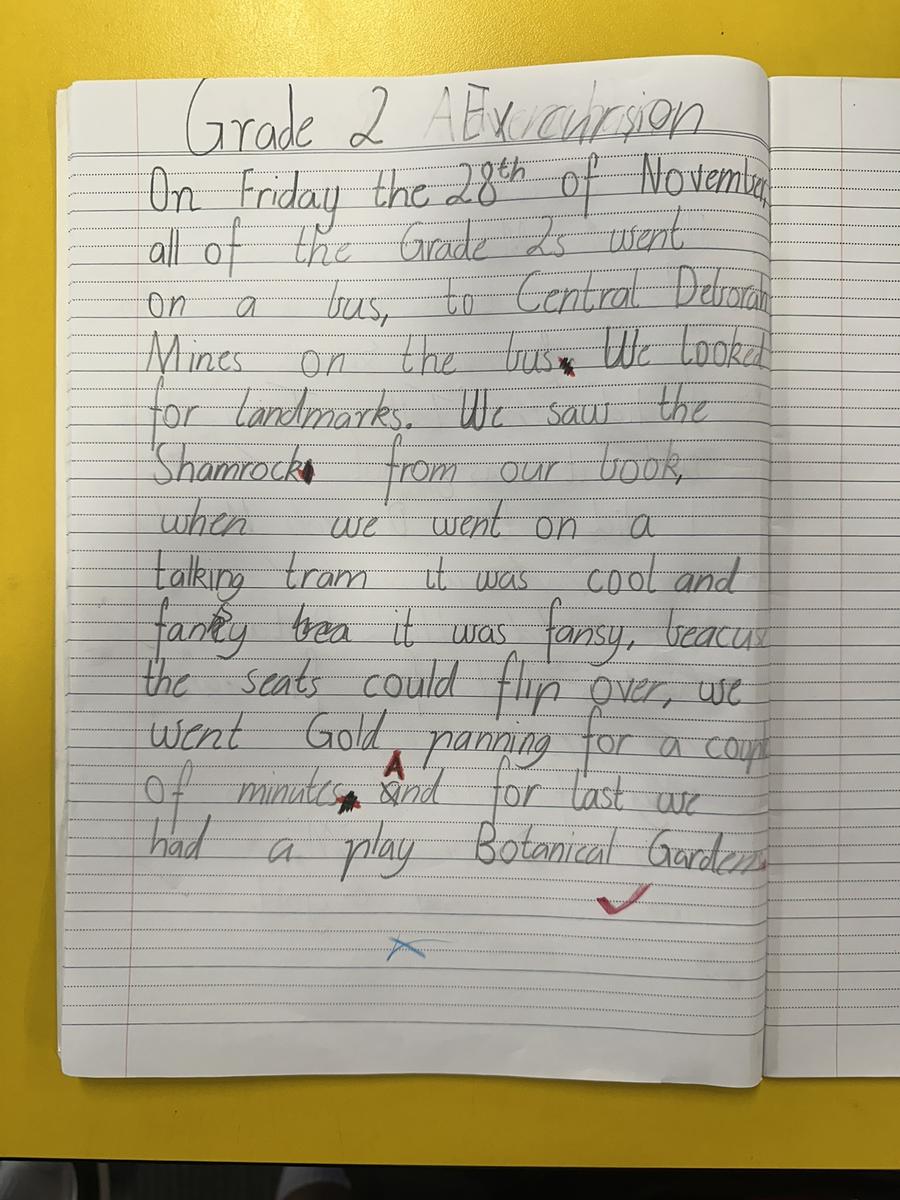 Grade 2 Excurhsion
On Friday the 28th of November,
all of the Grade 2s went
on a bus, to Central Deborah
Mines on the bus. We looked
for landmarks. We saw the
Shamrock from our book,
when we went on a
talking tram it was cool and
fansy bea it was fansy, beacus
the seats could flip over, we
went Gold panning for a coupl
of minutes. And for last we
had a play Botanical Gardens.